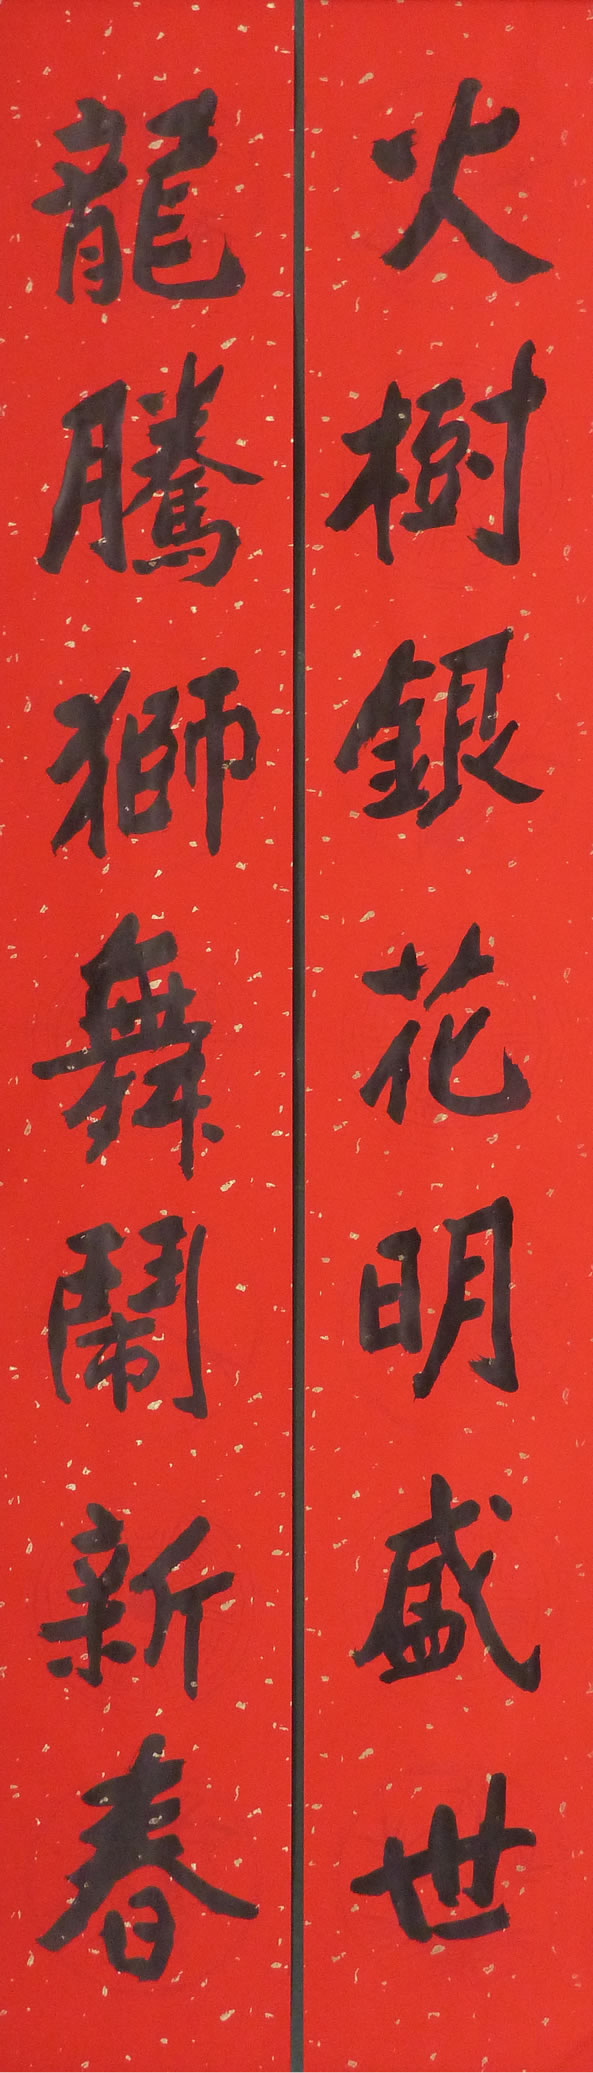 火樹銀花明盛世
龍騰獅舞鬧新春